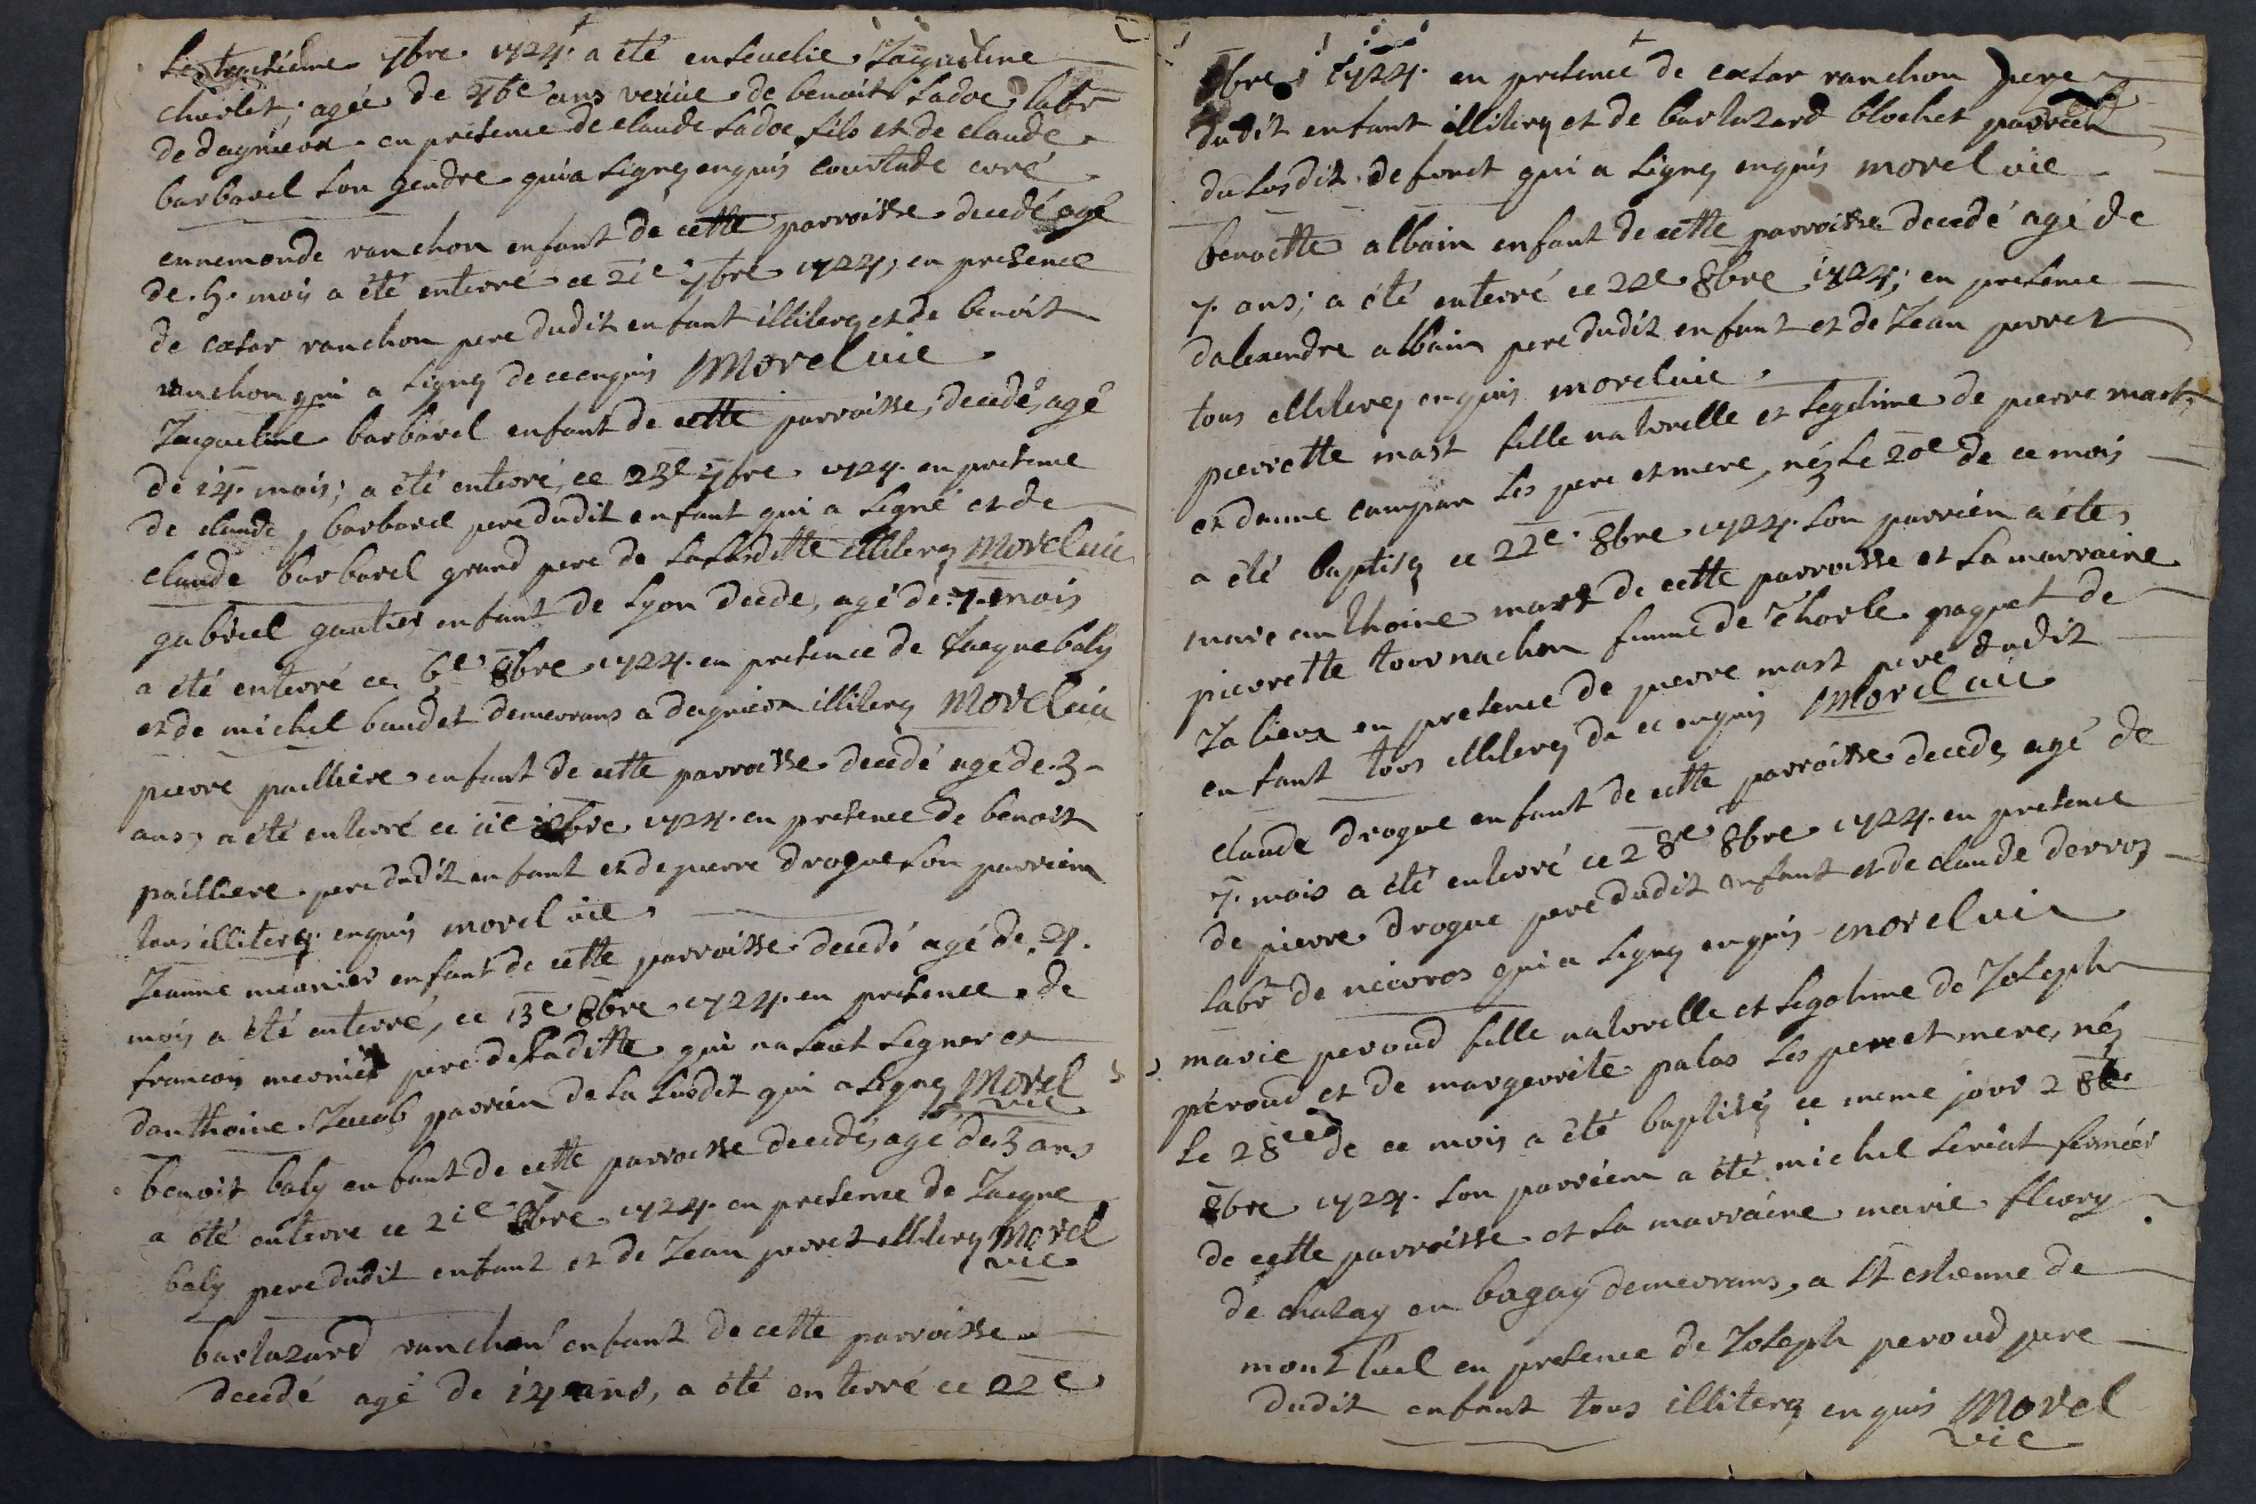 Le troisieme 7bre 1724. a été ensevelie Jaqueline
charlet; agée de ans veuue de benoit Ladoe labr
de dagnieux en presence de claude Ladoe fils et de claude
barbarel son gendre qui a signez enquis courtade curé
ennemonde ranchon enfant de cette parroisse decedé agé
de .5. mois a été enterré ce 21e 7bre 1724; en presence
de cæsar ranchon pere dudit enfant illiterez et de benoit
ranchon qui a signez de ce enquis Morel vic
Jaqueline barbarel enfant de cette parroisse, decedé, agé
de 14. mois; a été enterré, ce 23e 7bre 1724. en presence
de claude barbarel pere dudit enfant qui a signé et de
claude barbarel grand pere de la susditte illiterez Morel vic
gabriel gautier enfant de Lyon decede, agé de .7. mois
a été enterré ce 6e 8bre 1724. en presence de Jaque baly
et de michel baudet demeurans a dagnieux illiterez Morel vic
pierre pailliere enfant de cette parroisse decedé agé de .3
ans; a été enterré ce 11e 8bre 1724. en presence de benoit
pailliere pere dudit enfant et de pierre drogue son parrein
tous illiterez enquis morel vic
Jeanne meunier enfant de cette parroisse decedé agé de .24.
mois a été enterré, ce 13e 8bre 1724. en presence de
francois meunier pere de laditte qui na sceut signer et
danthoine Jacob parrein de la susdit qui a signez Morel
vic
benoit baly enfant de cette parroisse decedé, agé de 3 ans
a été enterre ce 21e 8bre 1724. en presence de Jaque
baly pere dudit enfant et de Jean perret illiterez Morel
vic
barlazard ranchon enfant de cette parroisse
decedé agé de 14 ans, a été enterré ce 22e
8bre 1724. en presence de cæsar ranchon pere
dudit enfant illiterez et de barlazard blochet parrein
du susdit defunct qui a signez enquis morel vic
benoette albain enfant de cette parroisse decedé agé de
7. ans; a été enterré ce 22e 8bre 1724; en presence
dalexendre albain pere dudit enfant et de Jean perret
tous illiterez enquis morel vic
pierrette mast fille naturelle et legitime de pierre mast
et danne campan ses pere et mere, néz le 20e de ce mois
a été baptisez ce 22e 8bre 1724. son parrein a étéz
marc anthoine mast de cette parroisse et sa marraine
pierrette tournachon femme de charle paquet de
Jalieux en presence de pierre mast pere dudit
enfant tous illiterez de ce enquis Morel vic
claude drogue enfant de cette parroisse decede, agé de
7. mois a été enterré ce 28e 8bre 1724. en presence
de pierre drogue pere dudit enfant et de claude derroz
labr de nieuros qui a signez enquis morel vic
marie peroud fille naturelle et legitime de Joseph
peroud et de margeurite palas ses pere et mere, néz
le 28e de ce mois a été baptisez ce meme jour 28e
8bre 1724. son parrein a été michel seriat fermier
de cette parroisse et sa marraine marie fleury
de chazay en bagay demeurans, a st estienne de
mont luel en presence de Joseph peroud pere
dudit enfant tous illiterez enquis Morel
vic